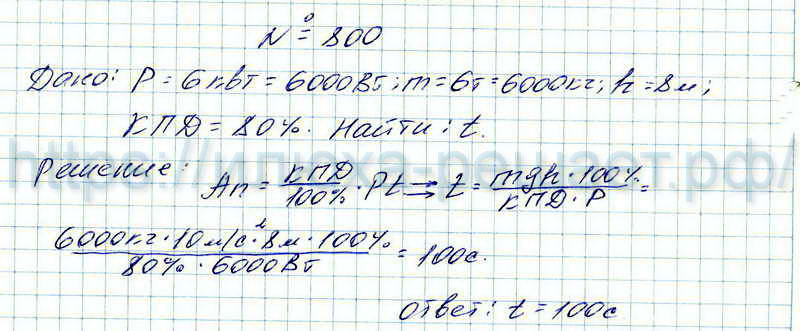 № 800
Дано: P = 6 кВт = 6000 Вт; m = 6т = 6000 кг; h = 8 м;
КПД = 80%. Найти: t.
https://ипока-решает.рф/
Решение: Aп = КПД/100% · Pt ⇒ t = mgh · 100%/КПД · P =
6000кг · 10 м/с² · 8 м · 100%/80% · 6000 Вт = 100с.
ответ: t = 100с